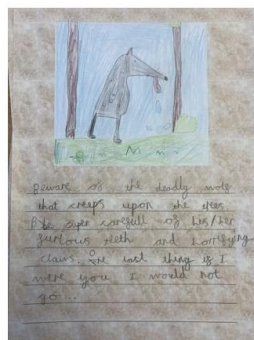 Beware of the deadly wolf
that creeps upon the trees.
Be super carefull of his/her
furious teeth and horrifying
claws. One last thing is I
were you I would not
go...